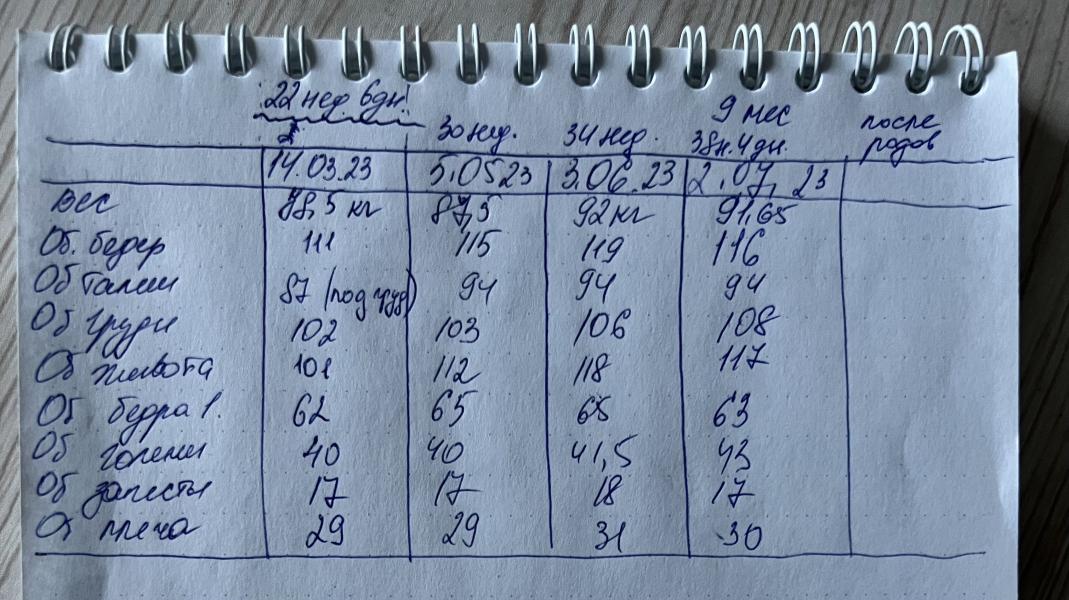 22 нед 6дн! 30 нед. 34 нед. 9 мес 38н.4дн. после родов
14.03.23 5.05 23 3.06.23 2.07.23
Вес 78,5 кг 87,5 92 кг 91,65
Об. бедер 111 115 119 116
Об талии 87 (под груд) 94 94 94
Об груди 102 103 106 108
Об живота 101 112 118 117
Об бедра 1. 62 65 65 63
Об голени 40 40 41,5 43
Об запястья 17 17 18 17
Об плеча 29 29 31 30